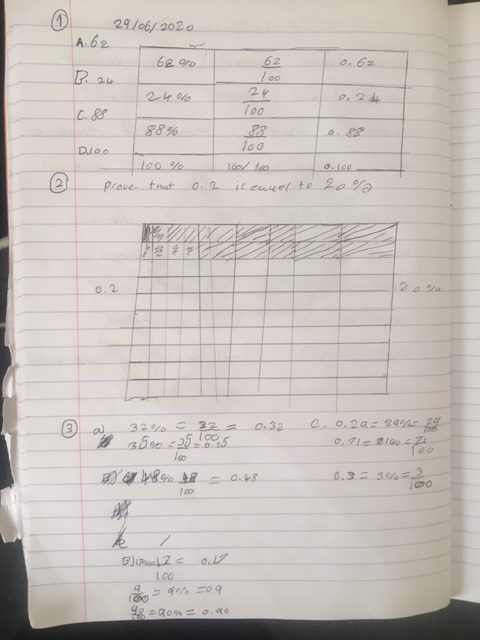 ① 29/06/2020
A. 62
62% 62/100 0.62
B. 24
24% 24/100 0.24
C. 88
88% 88/100 0.88
D. 100
100% 100/100 0.100
② prove that 0.2 is equal to 20%
0.2 20%
③ a) 32% = 32/100 = 0.32 C. 0.29 = 29% = 29/100
35% = 35/100 = 0.35 0.71 = 71/100
48% 48/100 = 0.48 0.3 = 3% = 3/100
B) 12/100 = 0.12
9/100 = 9% = 0.9
90/100 = 90% = 0.90